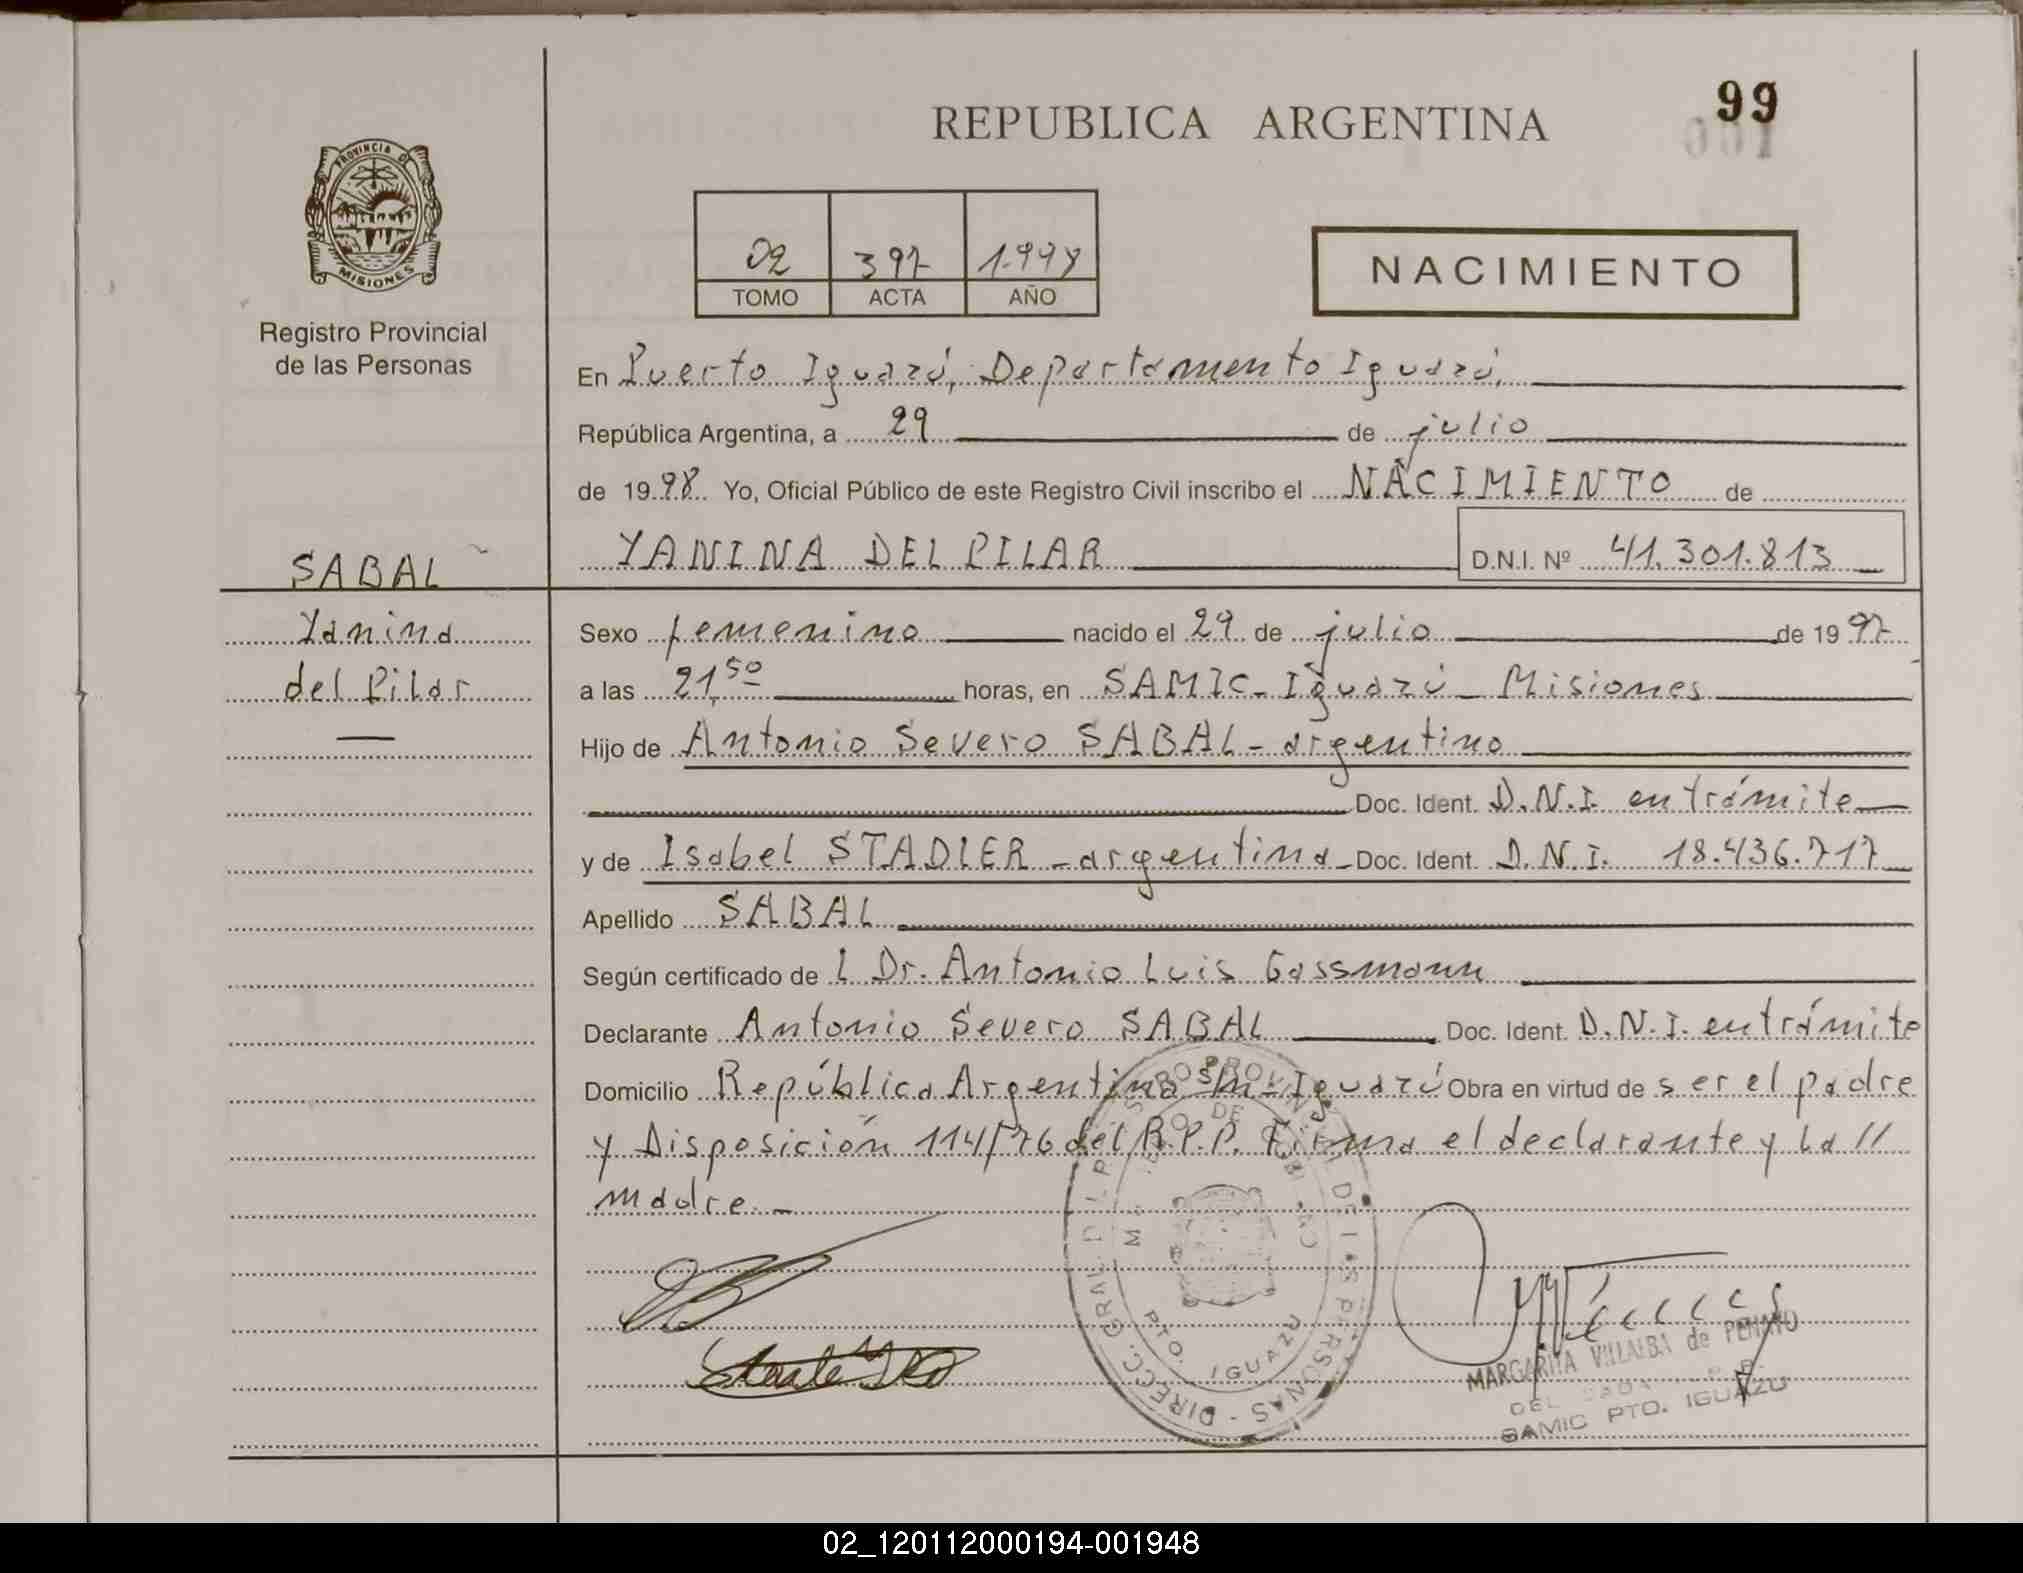 99
001
REPUBLICA ARGENTINA
PROVINCIA DE
MISIONES
Registro Provincial
de las Personas
02 397 1.998
TOMO ACTA AÑO
NACIMIENTO
En Puerto Iguazú, Departamento Iguazú,
República Argentina, a 29 de julio
de 1998 Yo, Oficial Público de este Registro Civil inscribo el NACIMIENTO de
SABAL
YANINA DEL PILAR D.N.I. Nº 41.301.813
Yanina
del Pilar
Sexo femenino nacido el 29 de julio de 1997
a las 21,50 horas, en SAMIC - Iguazú - Misiones
Hijo de Antonio Severo SABAL - argentino
Doc. Ident. D.N.I. en trámite
y de Isabel STADLER - argentina - Doc. Ident. D.N.I. 18.436.717
Apellido SABAL
Según certificado de l Dr. Antonio Luis Gassmann
Declarante Antonio Severo SABAL Doc. Ident. D.N.I. en trámite
Domicilio República Argentina s/n - Iguazú Obra en virtud de ser el padre
y Disposición 114/76 del R.P.P. Firma el declarante y la //
madre. -
PTO. IGUAZU
MARGARITA VILLALBA de PENAYO
SAMIC PTO. IGUAZU
02_120112000194-001948